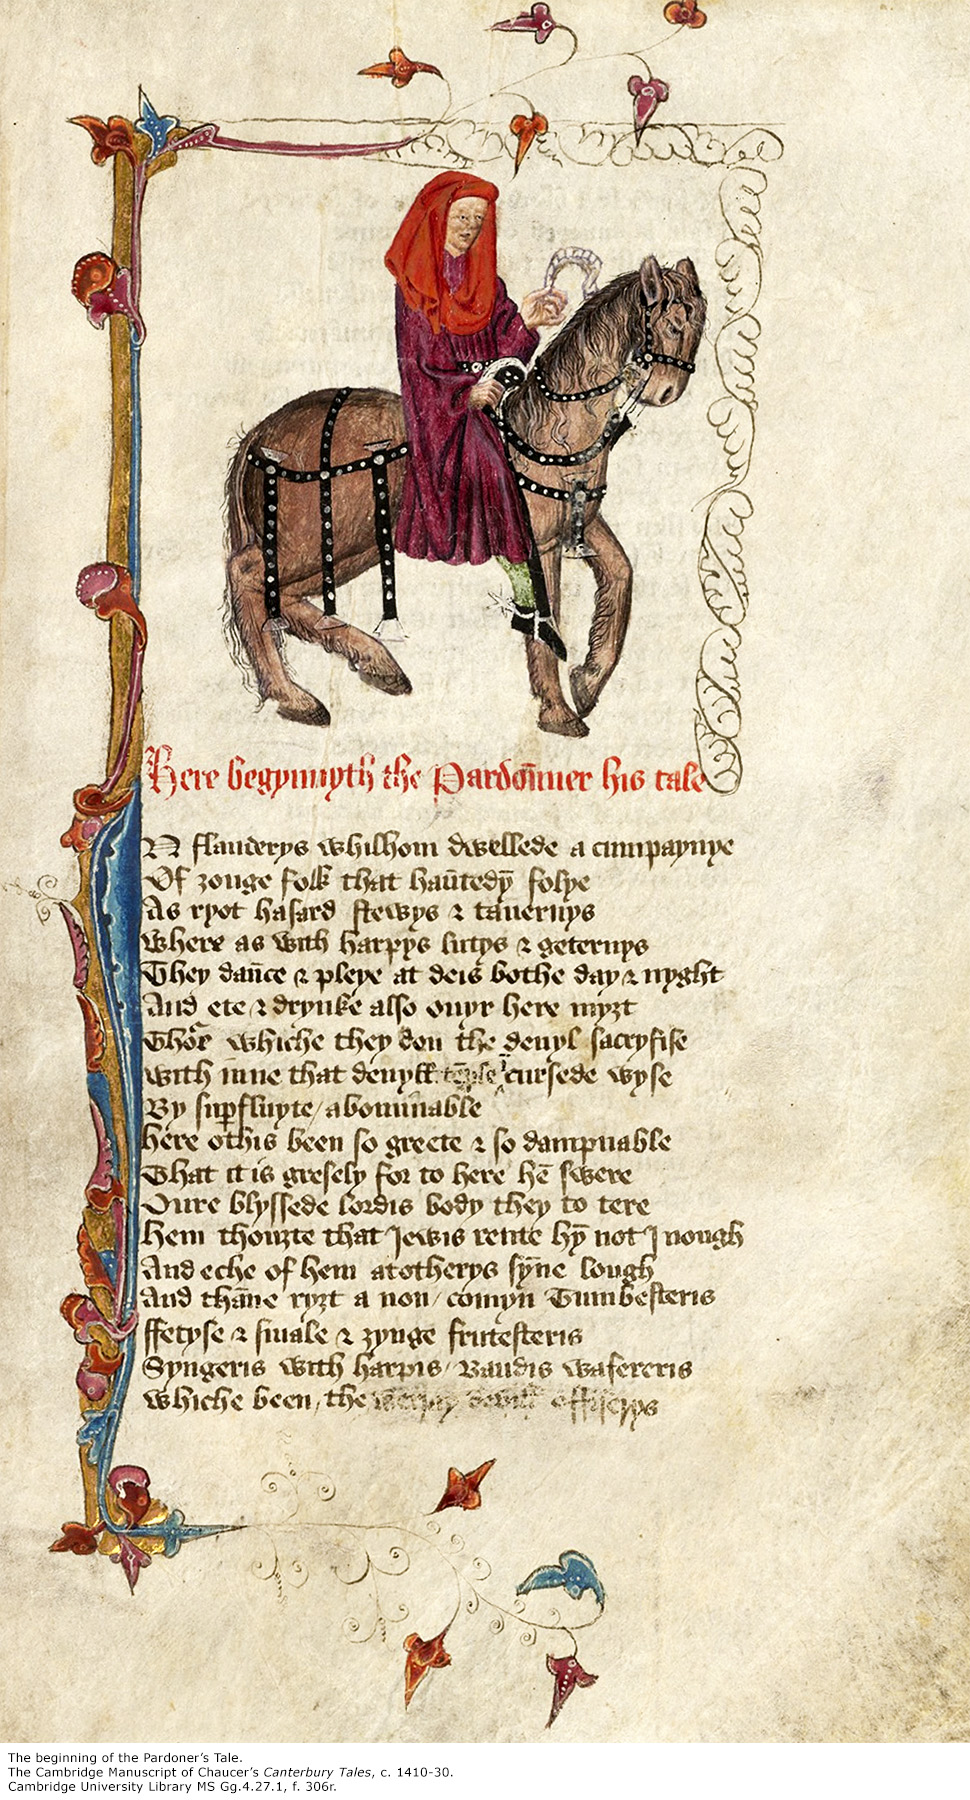 Here begynnyth the Pardon̄ner his tale
N flauderys whilhom dwellede a cumpaynye
Of ȝonge folk that haūtedyn̄ folye
As ryot hasard stewys & tauernys
Where as with harpys lutys & geternys
They daūce & pleye at deis bothe day & nyght
And ete & drynke also ouyr here myȝt
Thor whiche they don the deuyl sacryfise
With inne that deuyll cursede wyse
By supfluyte / abominable
here othis been so greete & so dampnable
That it is gresely for to here hē swere
Oure blyssede lordis body they to tere
hem thouȝte that Jewis rente hȳ not I nough
And eche of hem at otherys synne lough
And thāne ryȝt a non / comyn Tumbesteris
ffetyse & smale & ȝynge frutesteris
Syngeris with harpis / Baudis wafereris
Whiche been / the verray deuyll offiserys
The beginning of the Pardoner’s Tale.
The Cambridge Manuscript of Chaucer’s Canterbury Tales, c. 1410-30.
Cambridge University Library MS Gg.4.27.1, f. 306r.